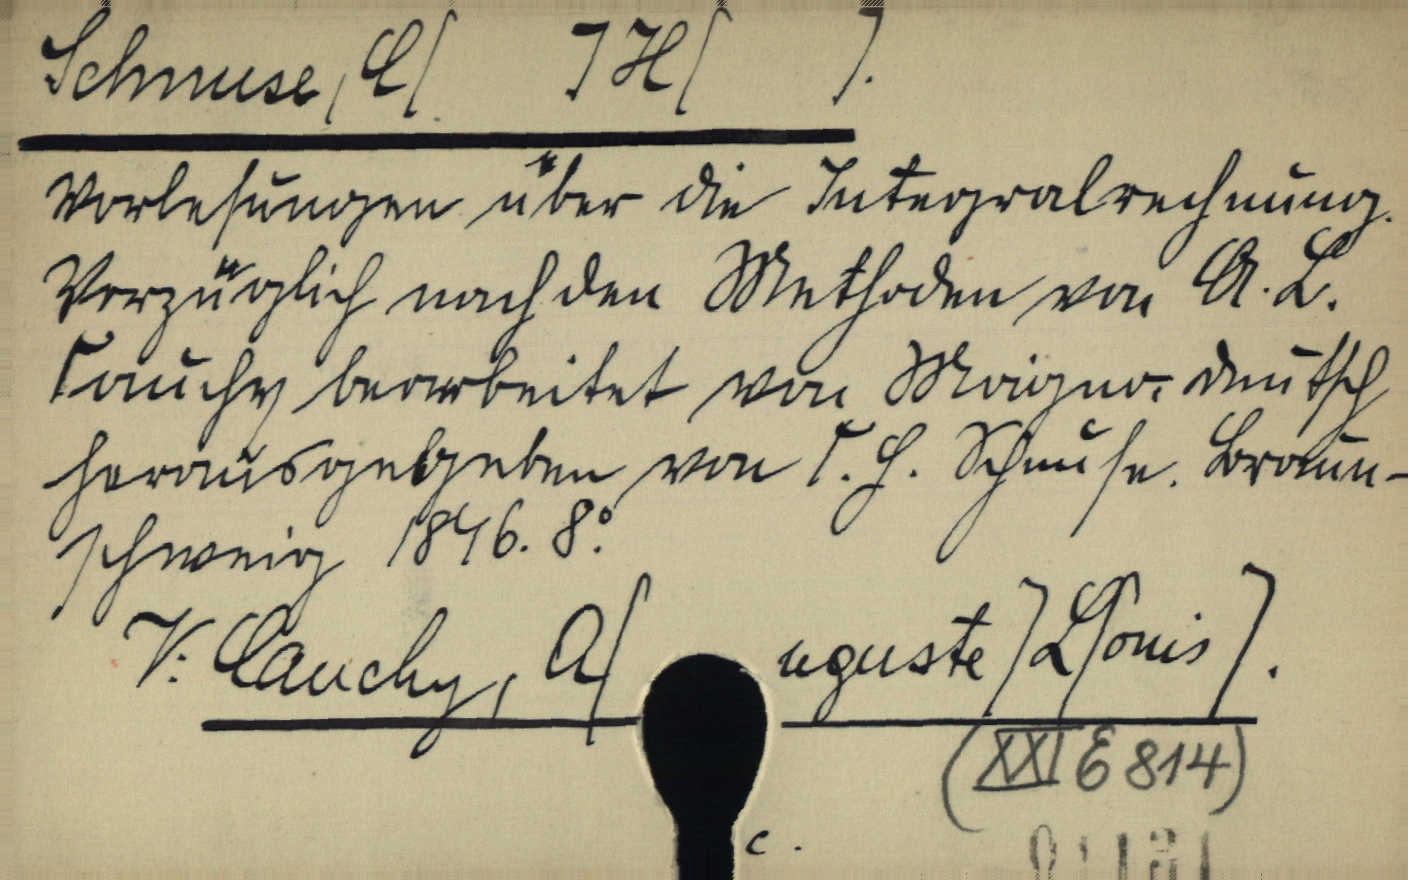 Schnuse, C[ ] H[ ].
Vorlesungen über die Integralrechnung.
Vorzüglich nach den Methoden von A. L.
Cauchy bearbeitet von Moigno: deutsch
herausgegeben von C. H. Schnuse. Braun-
schweig 1846. 8°.
V: Cauchy, A[uguste] L[ouis].
(XXI E 814)
c.